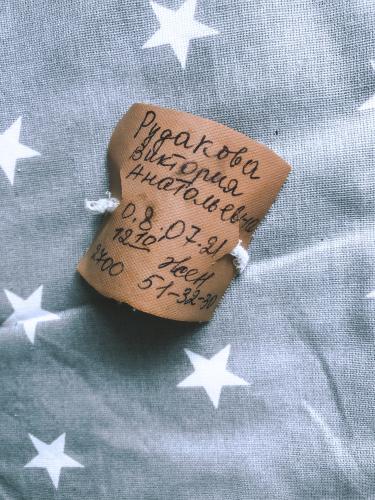 Рудакова
Виктория
Анатольевна
08.07.21
12 10 Жен
2700 51-32-30